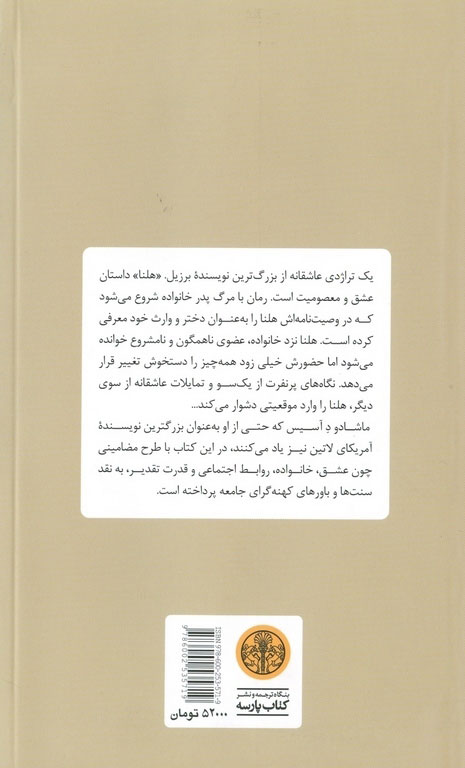 یک تراژدی عاشقانه از بزرگ‌ترین نویسندهٔ برزیل. «هلنا» داستان
عشق و معصومیت است. رمان با مرگ پدر خانواده شروع می‌شود
که در وصیت‌نامه‌اش هلنا را به‌عنوان دختر و وارث خود معرفی
کرده است. هلنا نزد خانواده، عضوی ناهمگون و نامشروع خوانده
می‌شود اما حضورش خیلی زود همه‌چیز را دستخوش تغییر قرار
می‌دهد. نگاه‌های پرنفرت از یک‌سو و تمایلات عاشقانه از سوی
دیگر، هلنا را وارد موقعیتی دشوار می‌کند...
ماشادو دِ آسیس که حتی از او به‌عنوان بزرگترین نویسندهٔ
آمریکای لاتین نیز یاد می‌کنند، در این کتاب با طرح مضامینی
چون عشق، خانواده، روابط اجتماعی و قدرت تقدیر، به نقد
سنت‌ها و باورهای کهنه‌گرای جامعه پرداخته است.
بنگاه ترجمه و نشر
کتاب پارسه
ISBN 978-600-253-571-9
9786002535719
۵۲۰۰۰ تومان